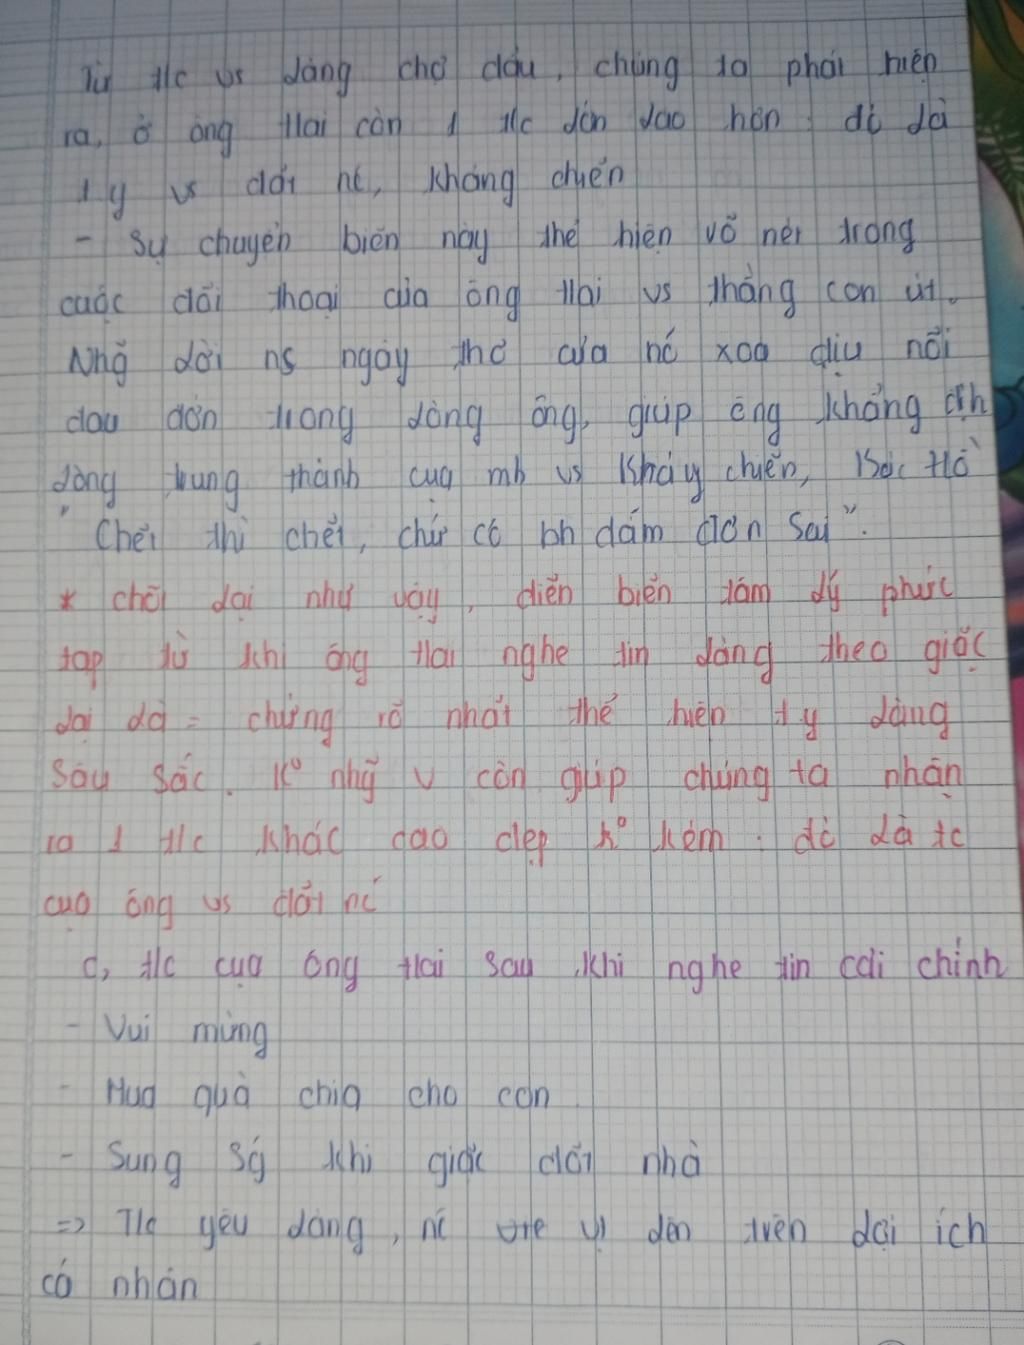 Từ t/c vs làng chợ dầu, chúng ta phát hiện
ra, ở ông Hai còn 1 t/c lớn lao hơn: đó là
ty vs đất nc, kháng chiến
- Sự chuyển biến này thể hiện rõ nét trong
cuộc đối thoại của ông Hai vs thằng con út.
Nhg̃ lời ns ngây thơ của nó xoa dịu nỗi
đau đớn trong lòng ông, giúp ông khẳng định
lòng trung thành của mh vs kháng chiến, Bác Hồ
"Chết thì chết, chứ có bh dám đơn sai".
* chốt lại như vậy, diễn biến tâm lý phức
tạp từ khi ông Hai nghe tin làng theo giặc
lại là = chứng rõ nhất thể hiện ty làng
sâu sắc. K° nhg̃ v còn giúp chúng ta nhận
ra 1 t/c khác cao đẹp k° kém: đó là tc
của ông vs đất nc
c, t/c của ông Hai sau khi nghe tin cải chính
- Vui mừng
- Mua quà chia cho con
- Sung sg khi giặc đốt nhà
=> T/c yêu làng, nc lên trên lợi ích
cá nhân